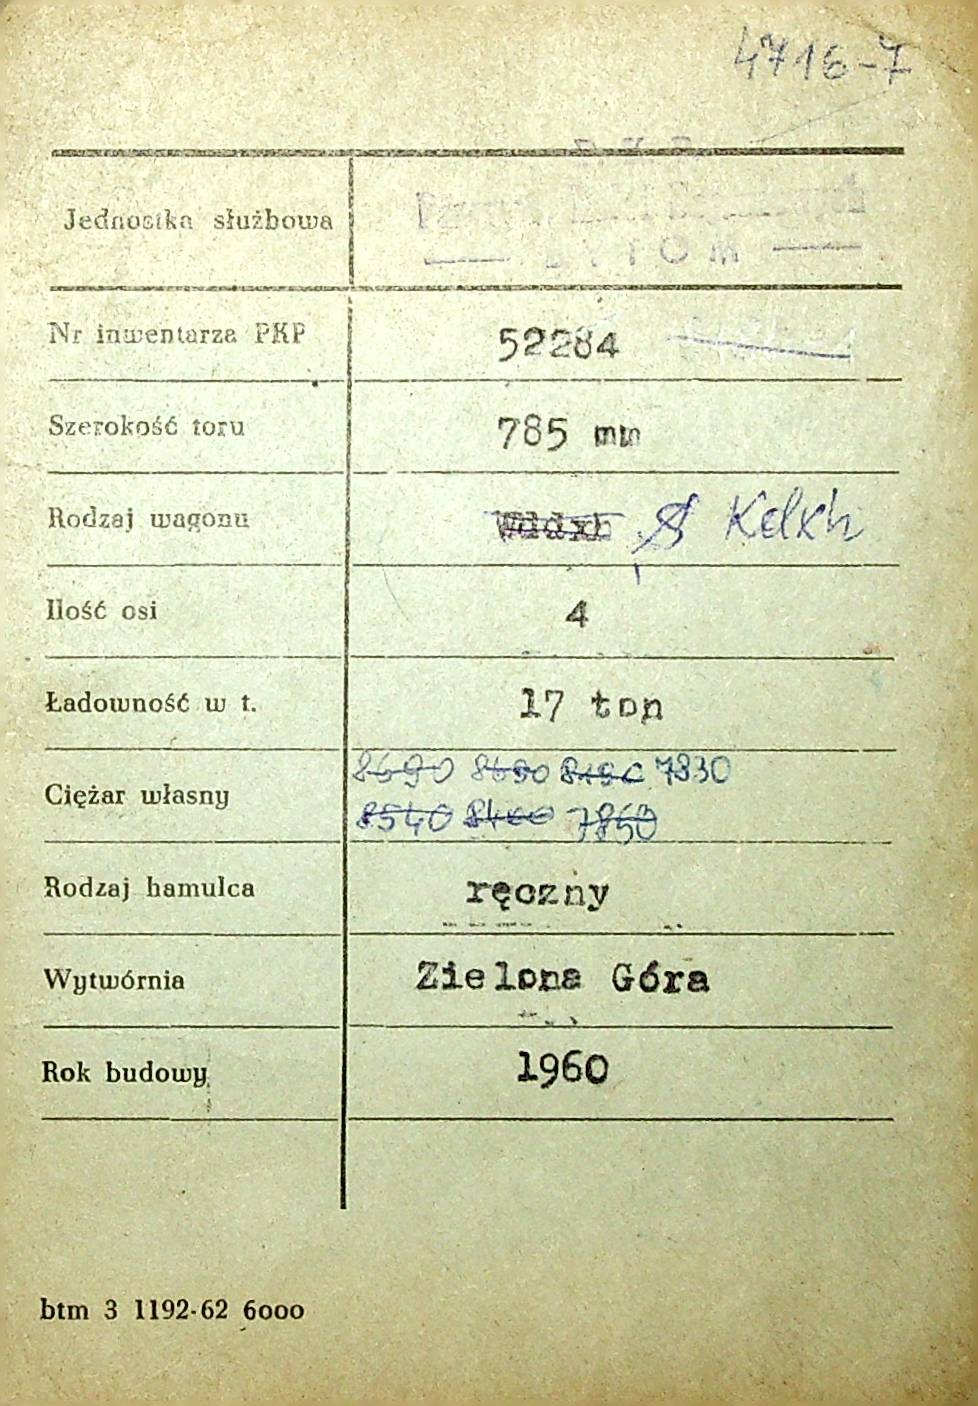 4716-7
Jednostka służbowa
BYTOM
Nr inwentarza PKP 52284
Szerokość toru 785 mm
Rodzaj wagonu Wddxh Kdkh
Ilość osi 4
Ładowność w t. 17 ton
8690 7830
Ciężar własny
8540 7860
Rodzaj hamulca ręczny
Wytwórnia Zielona Góra
Rok budowy 1960
btm 3 1192-62 6000